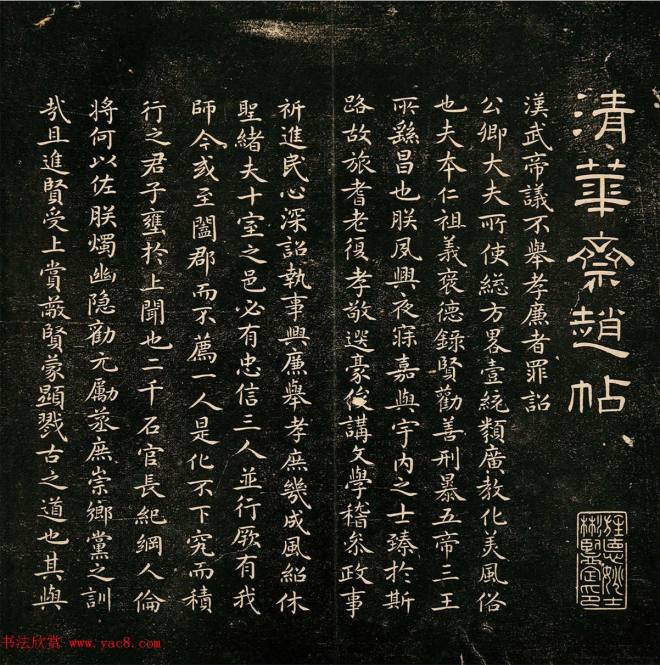 清華齋趙帖
漢武帝議不舉孝廉者罪詔
公卿大夫所使總方畧壹統類廣教化美風俗
也夫本仁祖義褒德錄賢勸善刑暴五帝三王
所繇昌也朕夙興夜寐嘉與宇内之士臻於斯
路故旅耆老復孝敬選豪俊講文學稽參政事
祈進民心深詔執事興廉舉孝庶幾成風紹休
聖緒夫十室之邑必有忠信三人並行厥有我
師今或至闔郡而不薦一人是化不下究而積
行之君子壅於上聞也二千石官長紀綱人倫
將何以佐朕燭幽隐勸元厲蒸庶崇鄉黨之訓
哉且進賢受上賞蔽賢蒙顯戮古之道也其與
书法欣赏 www.yac8.com